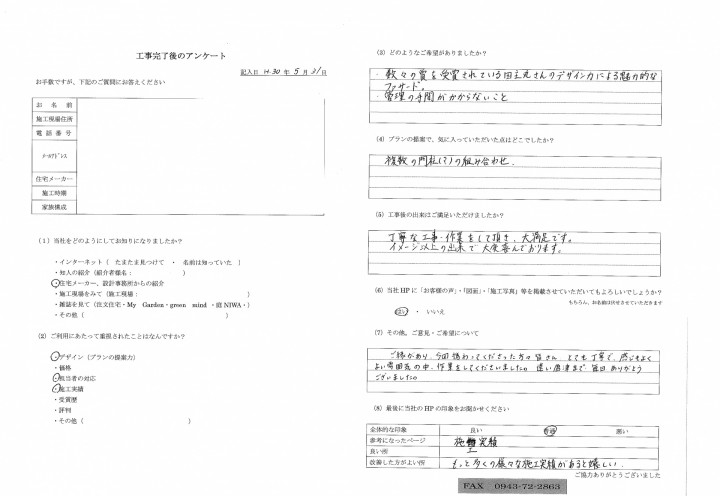 工事完了後のアンケート
記入日 H.30 年 5 月 31 日
お手数ですが、下記のご質問にお答えください
お名前
施工現場住所
電話番号
メールアドレス
住宅メーカー
施工時期
家族構成
(1)当社をどのようにしてお知りになりましたか？
・インターネット（ たまたま見つけて ・ 名前は知っていた ）
・知人の紹介（紹介者様名： ）
・住宅メーカー、設計事務所からの紹介
・施工現場をみて（施工現場： ）
・雑誌を見て（注文住宅・My Garden・green mind ・庭 NIWA・）
・その他（ ）
(2) ご利用にあたって重視されたことはなんですか？
・デザイン（プランの提案力）
・価格
・担当者の対応
・施工実績
・受賞歴
・評判
・その他（ ）
(3) どのようなご希望がありましたか？
・数々の賞を受賞されている田主丸さんのデザイン力による魅力的な
ファサード。
・管理の手間がかからないこと
(4) プランの提案で、気に入っていただいた点はどこでしたか？
複数の門札(?)の組み合わせ.
(5) 工事後の出来はご満足いただけましたか？
丁寧な工事・作業をして頂き、大満足です。
イメージ以上の出来で大変喜んでおります。
(6) 当社 HP に「お客様の声」・「図面」・「施工写真」等を掲載させていただいてもよろしいでしょうか？
もちろん、お名前は伏せさせていただきます
はい ・ いいえ
(7) その他、ご意見・ご希望について
ご縁があり、今回携わってくださった方の皆さん、とても丁寧で、感じもよく
よい雰囲気の中、作業をしてくださいました。遠い唐津まで毎日ありがとう
ございました。
(8) 最後に当社の HP の印象をお聞かせください
全体的な印象 良い 普通 悪い
参考になったページ 施工実績
良い所
改善した方がよい所 もっと多くの様々な施工実績があると嬉しい.
ご協力ありがとうございました
FAX 0943-72-2863